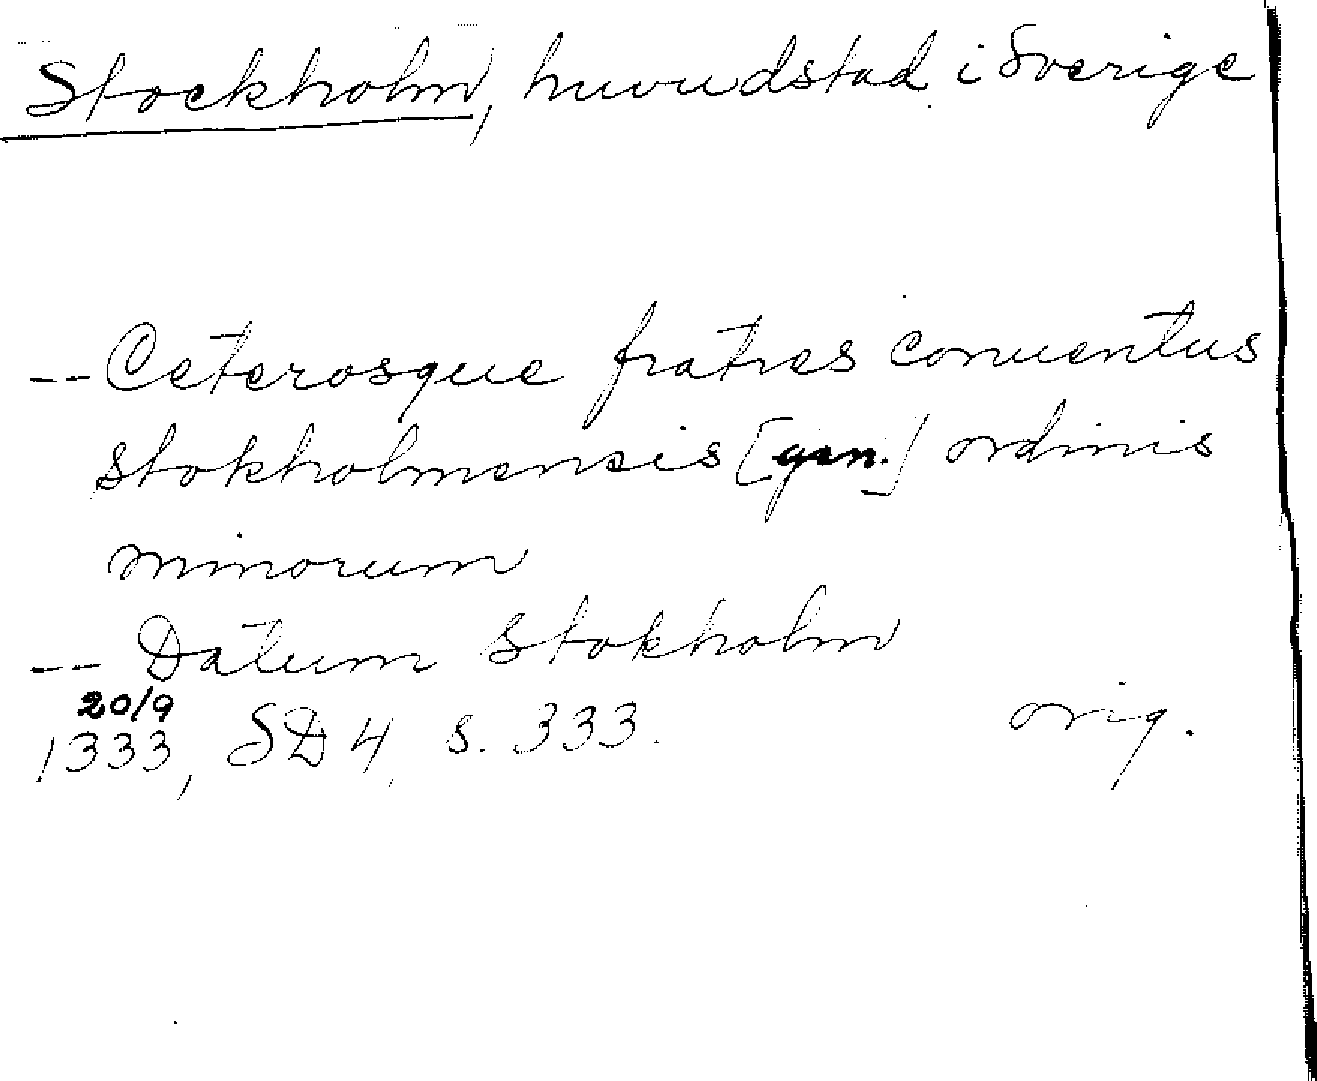 Stockholm, huvudstad i Sverige
-- Ceterosque fratres conuentus
stokholmensis [gen.] ordinis
minorum
-- Datum stokholm
20/9
1333, SD 4, s. 333. orig.